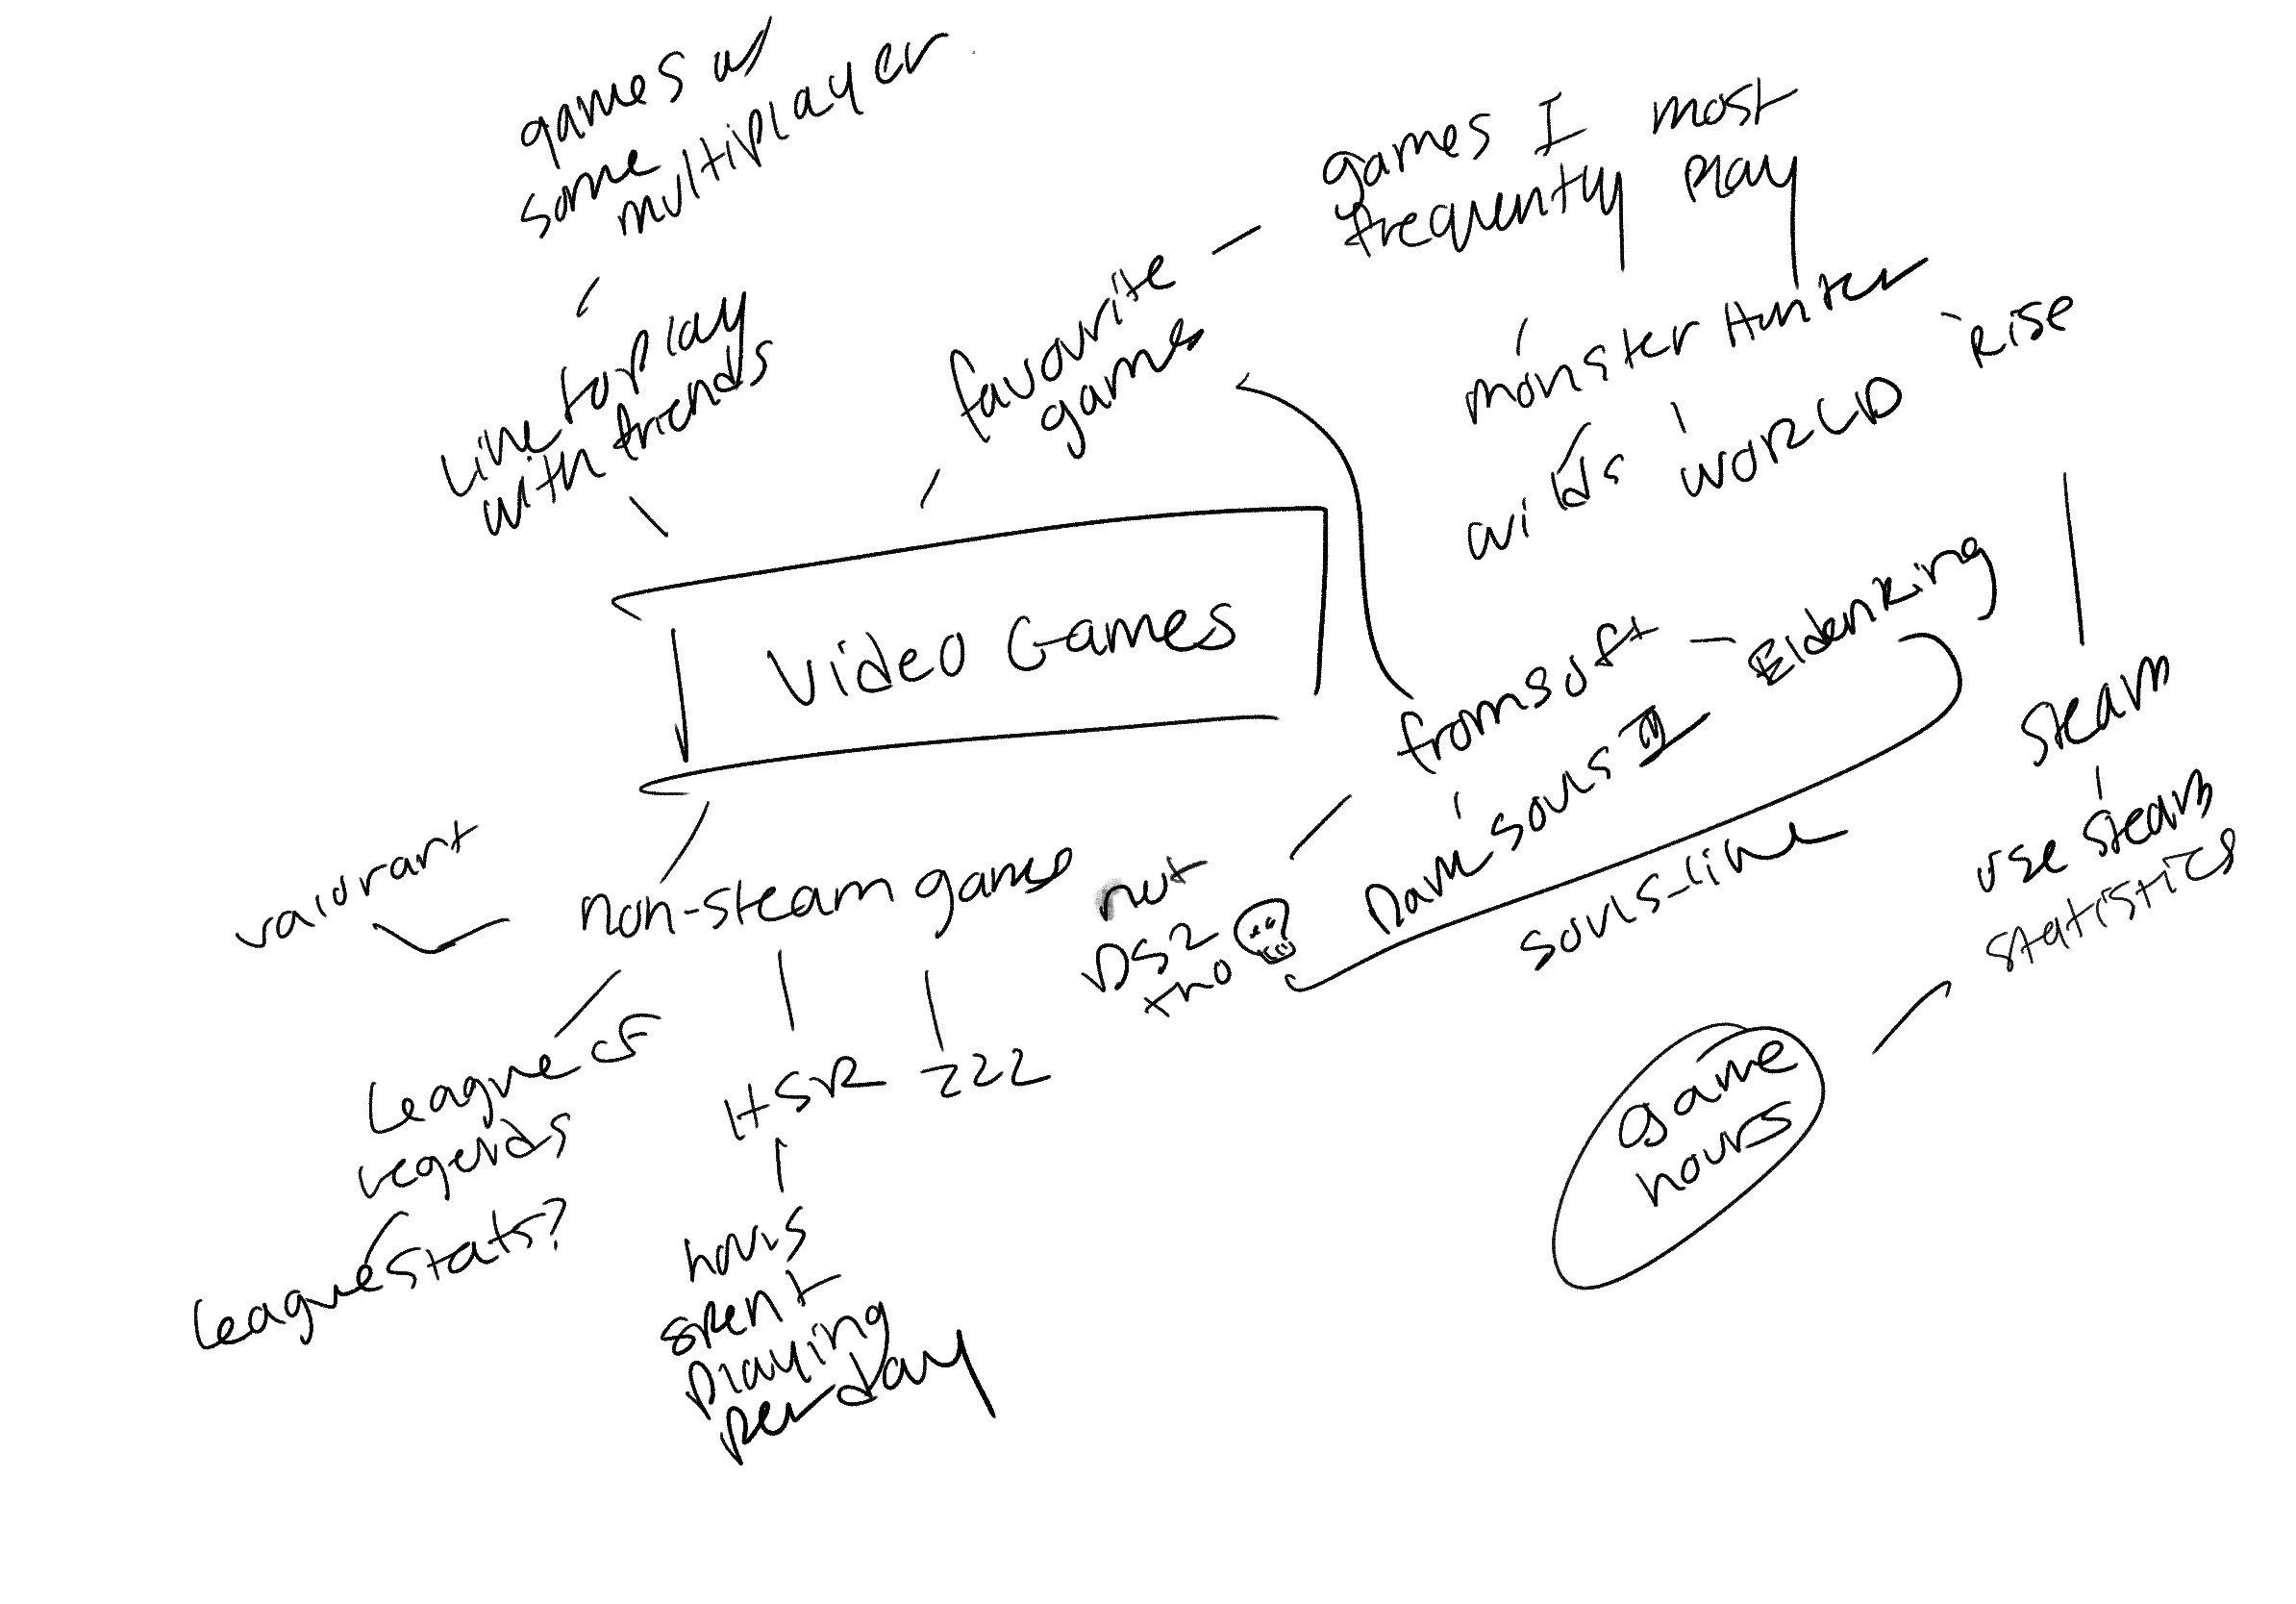 games w/
some
multiplayer
Like to play
with friends
favourite
games
games I most
frequently play
monster Hunter
Rise
wilds
WORLD
Video Games
fromsoft
Elden Ring
Dark Souls III
not
DS2
tho
souls-like
steam
use steam
statistics
game
hours
non-steam games
valorant
League of
Legends
League Stats?
HSR
ZZZ
hours
spent
playing
per day